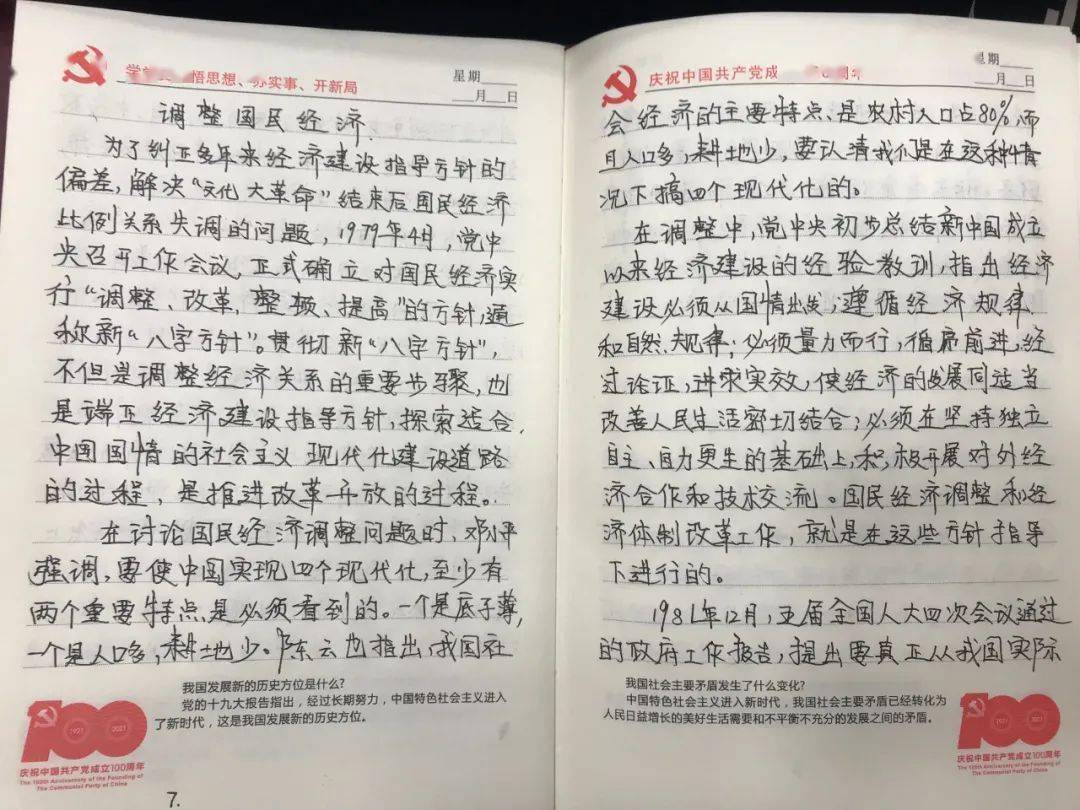 悟思想、办实事、开新局
星期
月 日
调整国民经济
为了纠正多年来经济建设指导方针的
偏差,解决“文化大革命”结束后国民经济
比例关系失调的问题,1979年4月,党中
央召开工作会议,正式确立对国民经济实
行“调整、改革、整顿、提高”的方针,通
称新“八字方针”。贯彻新“八字方针”,
不但是调整经济关系的重要步骤,也
是端正经济建设指导方针,探索适合
中国国情的社会主义现代化建设道路
的过程,是推进改革开放的过程。
在讨论国民经济调整问题时,邓小平
强调,要使中国实现四个现代化,至少有
两个重要特点是必须看到的。一个是底子薄,
一个是人口多,耕地少。陈云也指出,我国社
我国发展新的历史方位是什么?
党的十九大报告指出,经过长期努力,中国特色社会主义进入
了新时代,这是我国发展新的历史方位。
1921 2021
100
庆祝中国共产党成立100周年
The 100th Anniversary of the Founding of
The Communist Party of China
7.
庆祝中国共产党成
星期
月 日
会经济的主要特点、是农村人口占80%,而
且人口多,耕地少,要认清我们是在这种情
况下搞四个现代化的。
在调整中,党中央初步总结新中国成立
以来经济建设的经验教训,指出经济
建设必须从国情出发,遵循经济规律
和自然规律;必须量力而行,循序前进,经
过论证,讲求实效,使经济的发展同适当
改善人民生活密切结合;必须在坚持独立
自主、自力更生的基础上,积极开展对外经
济合作和技术交流。国民经济调整和经
济体制改革工作,就是在这些方针指导
下进行的。
1981年12月,五届全国人大四次会议通过
的政府工作报告,提出要真正从我国实际
我国社会主要矛盾发生了什么变化?
中国特色社会主义进入新时代,我国社会主要矛盾已经转化为
人民日益增长的美好生活需要和不平衡不充分的发展之间的矛盾。
1921 2021
100
庆祝中国共产党成立100周年
The 100th Anniversary of the Founding of
The Communist Party of China